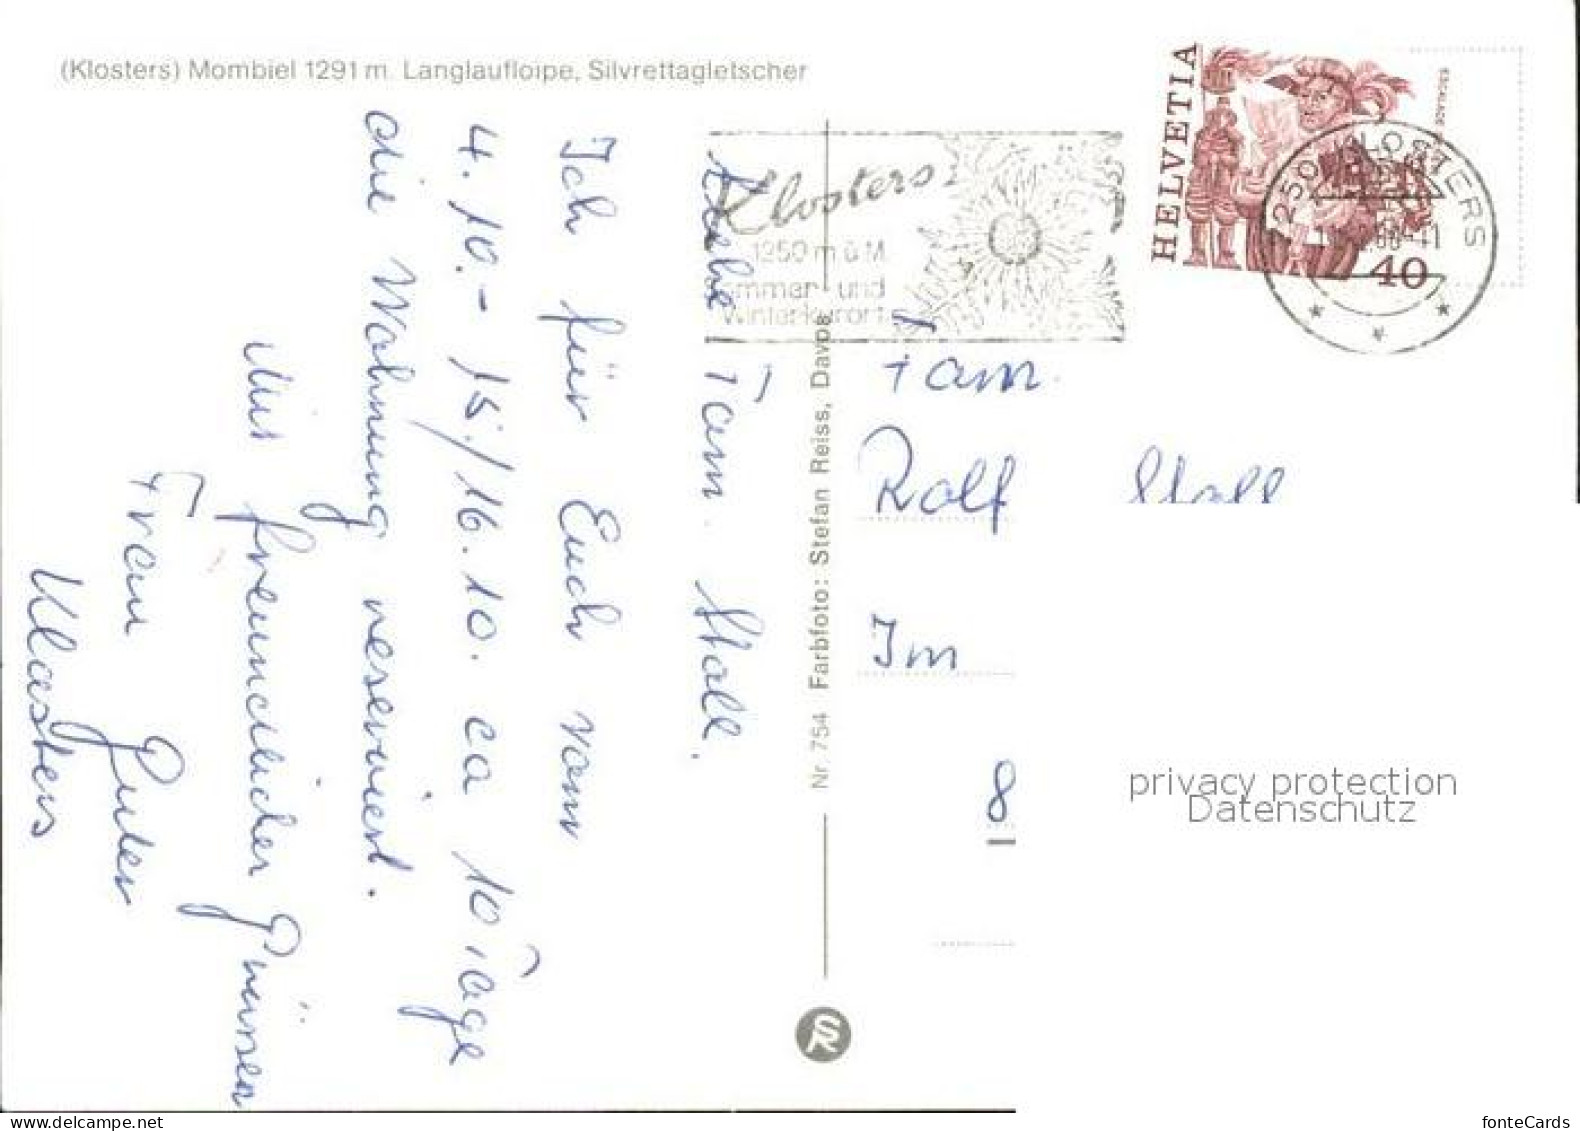 (Klosters) Mombiel 1291 m. Langlaufloipe, Silvrettagletscher
Liebe Fam. Stoll.
Ich für Euch vom
4.10.- 15./16.10. ca 10 Tage
die Wohnung reserviert.
Mit freundlichen Grüssen
Frau Guler
Klosters
Nr. 754 Farbfoto: Stefan Reiss, Davos
SR
Klosters
1250 m ü M
ommer- und
Winterkurort
HELVETIA
ESCALADE
40
7250 KLOSTERS
Fam.
Rolf Stoll
Im
8
privacy protection
Datenschutz
fonteCards